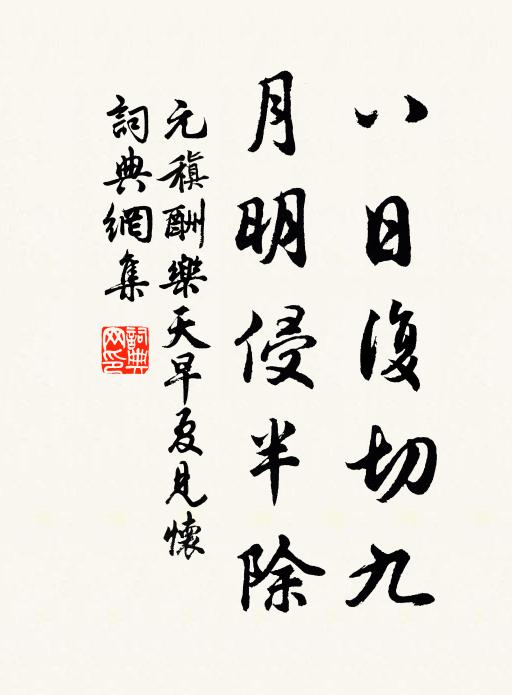 八日復切九
月明侵半除
元稹酬樂天早夏見懷
詞典網集
詞典
网印